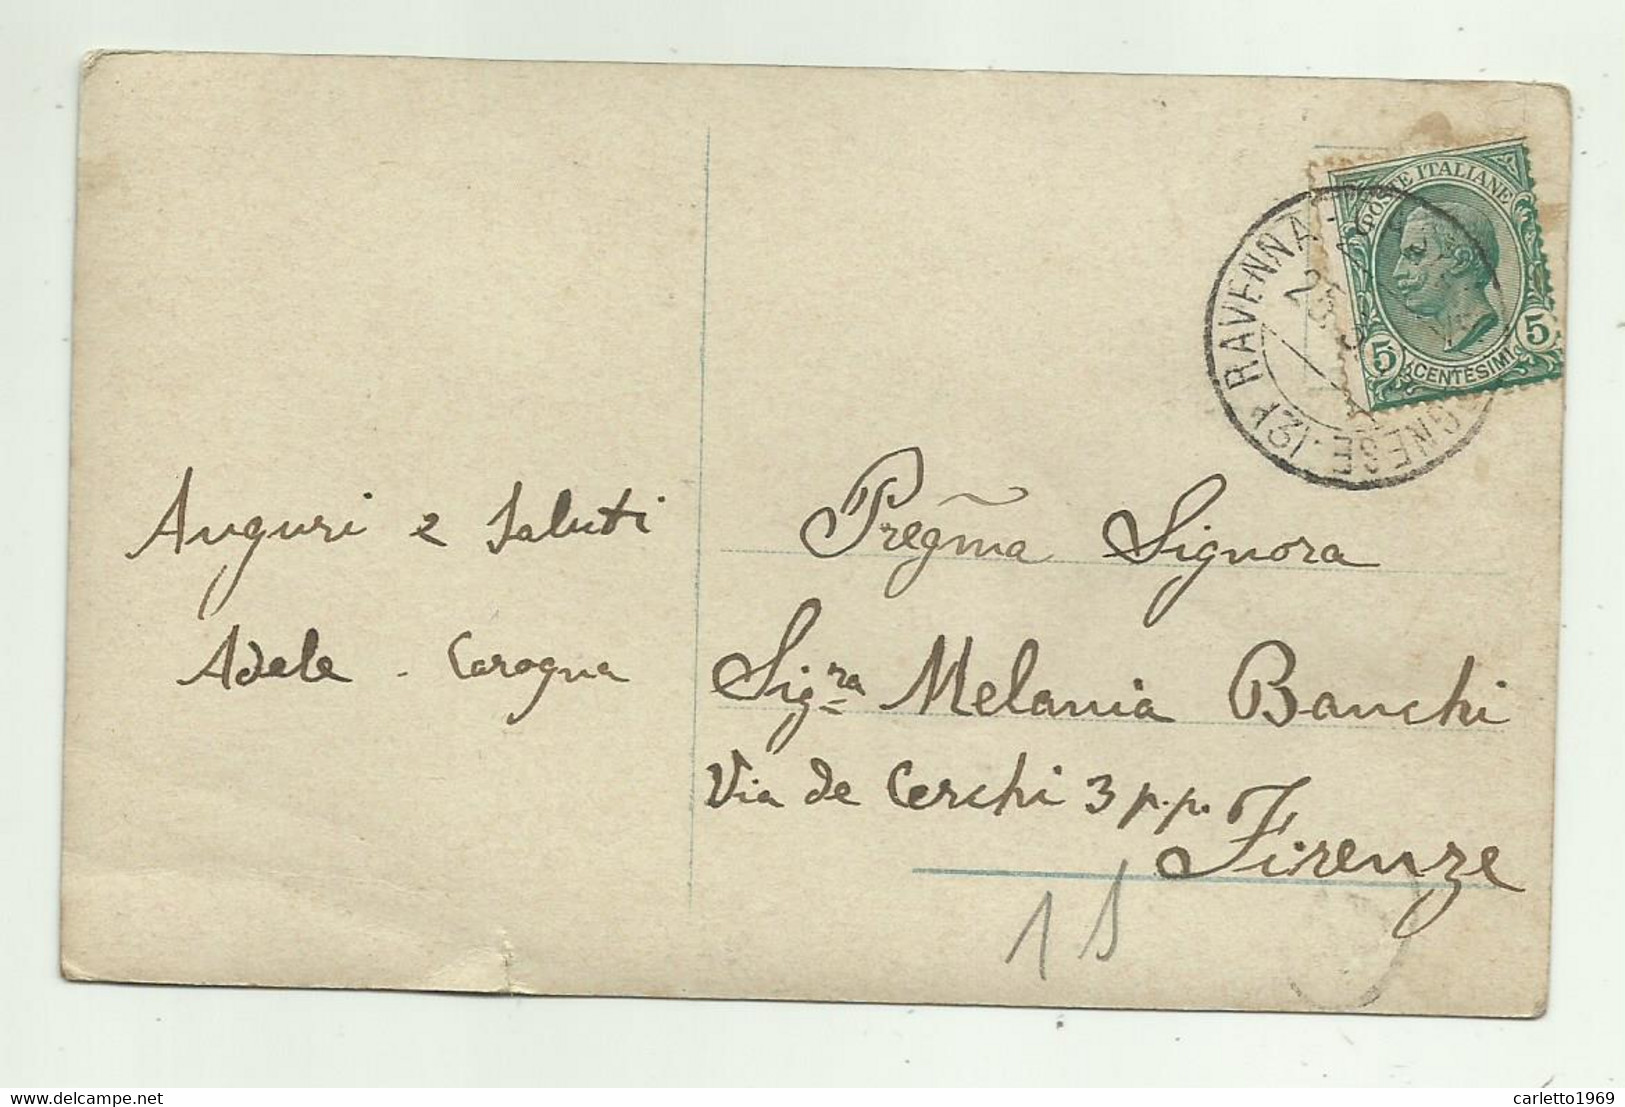 POSTE ITALIANE
5 CENTESIMI 5
RAVENNA
25
(2)
Auguri e saluti
Adele - Carogna
Preg̃ma Signora
Sig.ra Melania Banchi
Via de Cerchi 3 p.p.
Firenze
15
carletto1969
delcampe.net